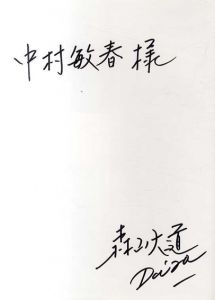 中村敏春 様
森山大道
Daido